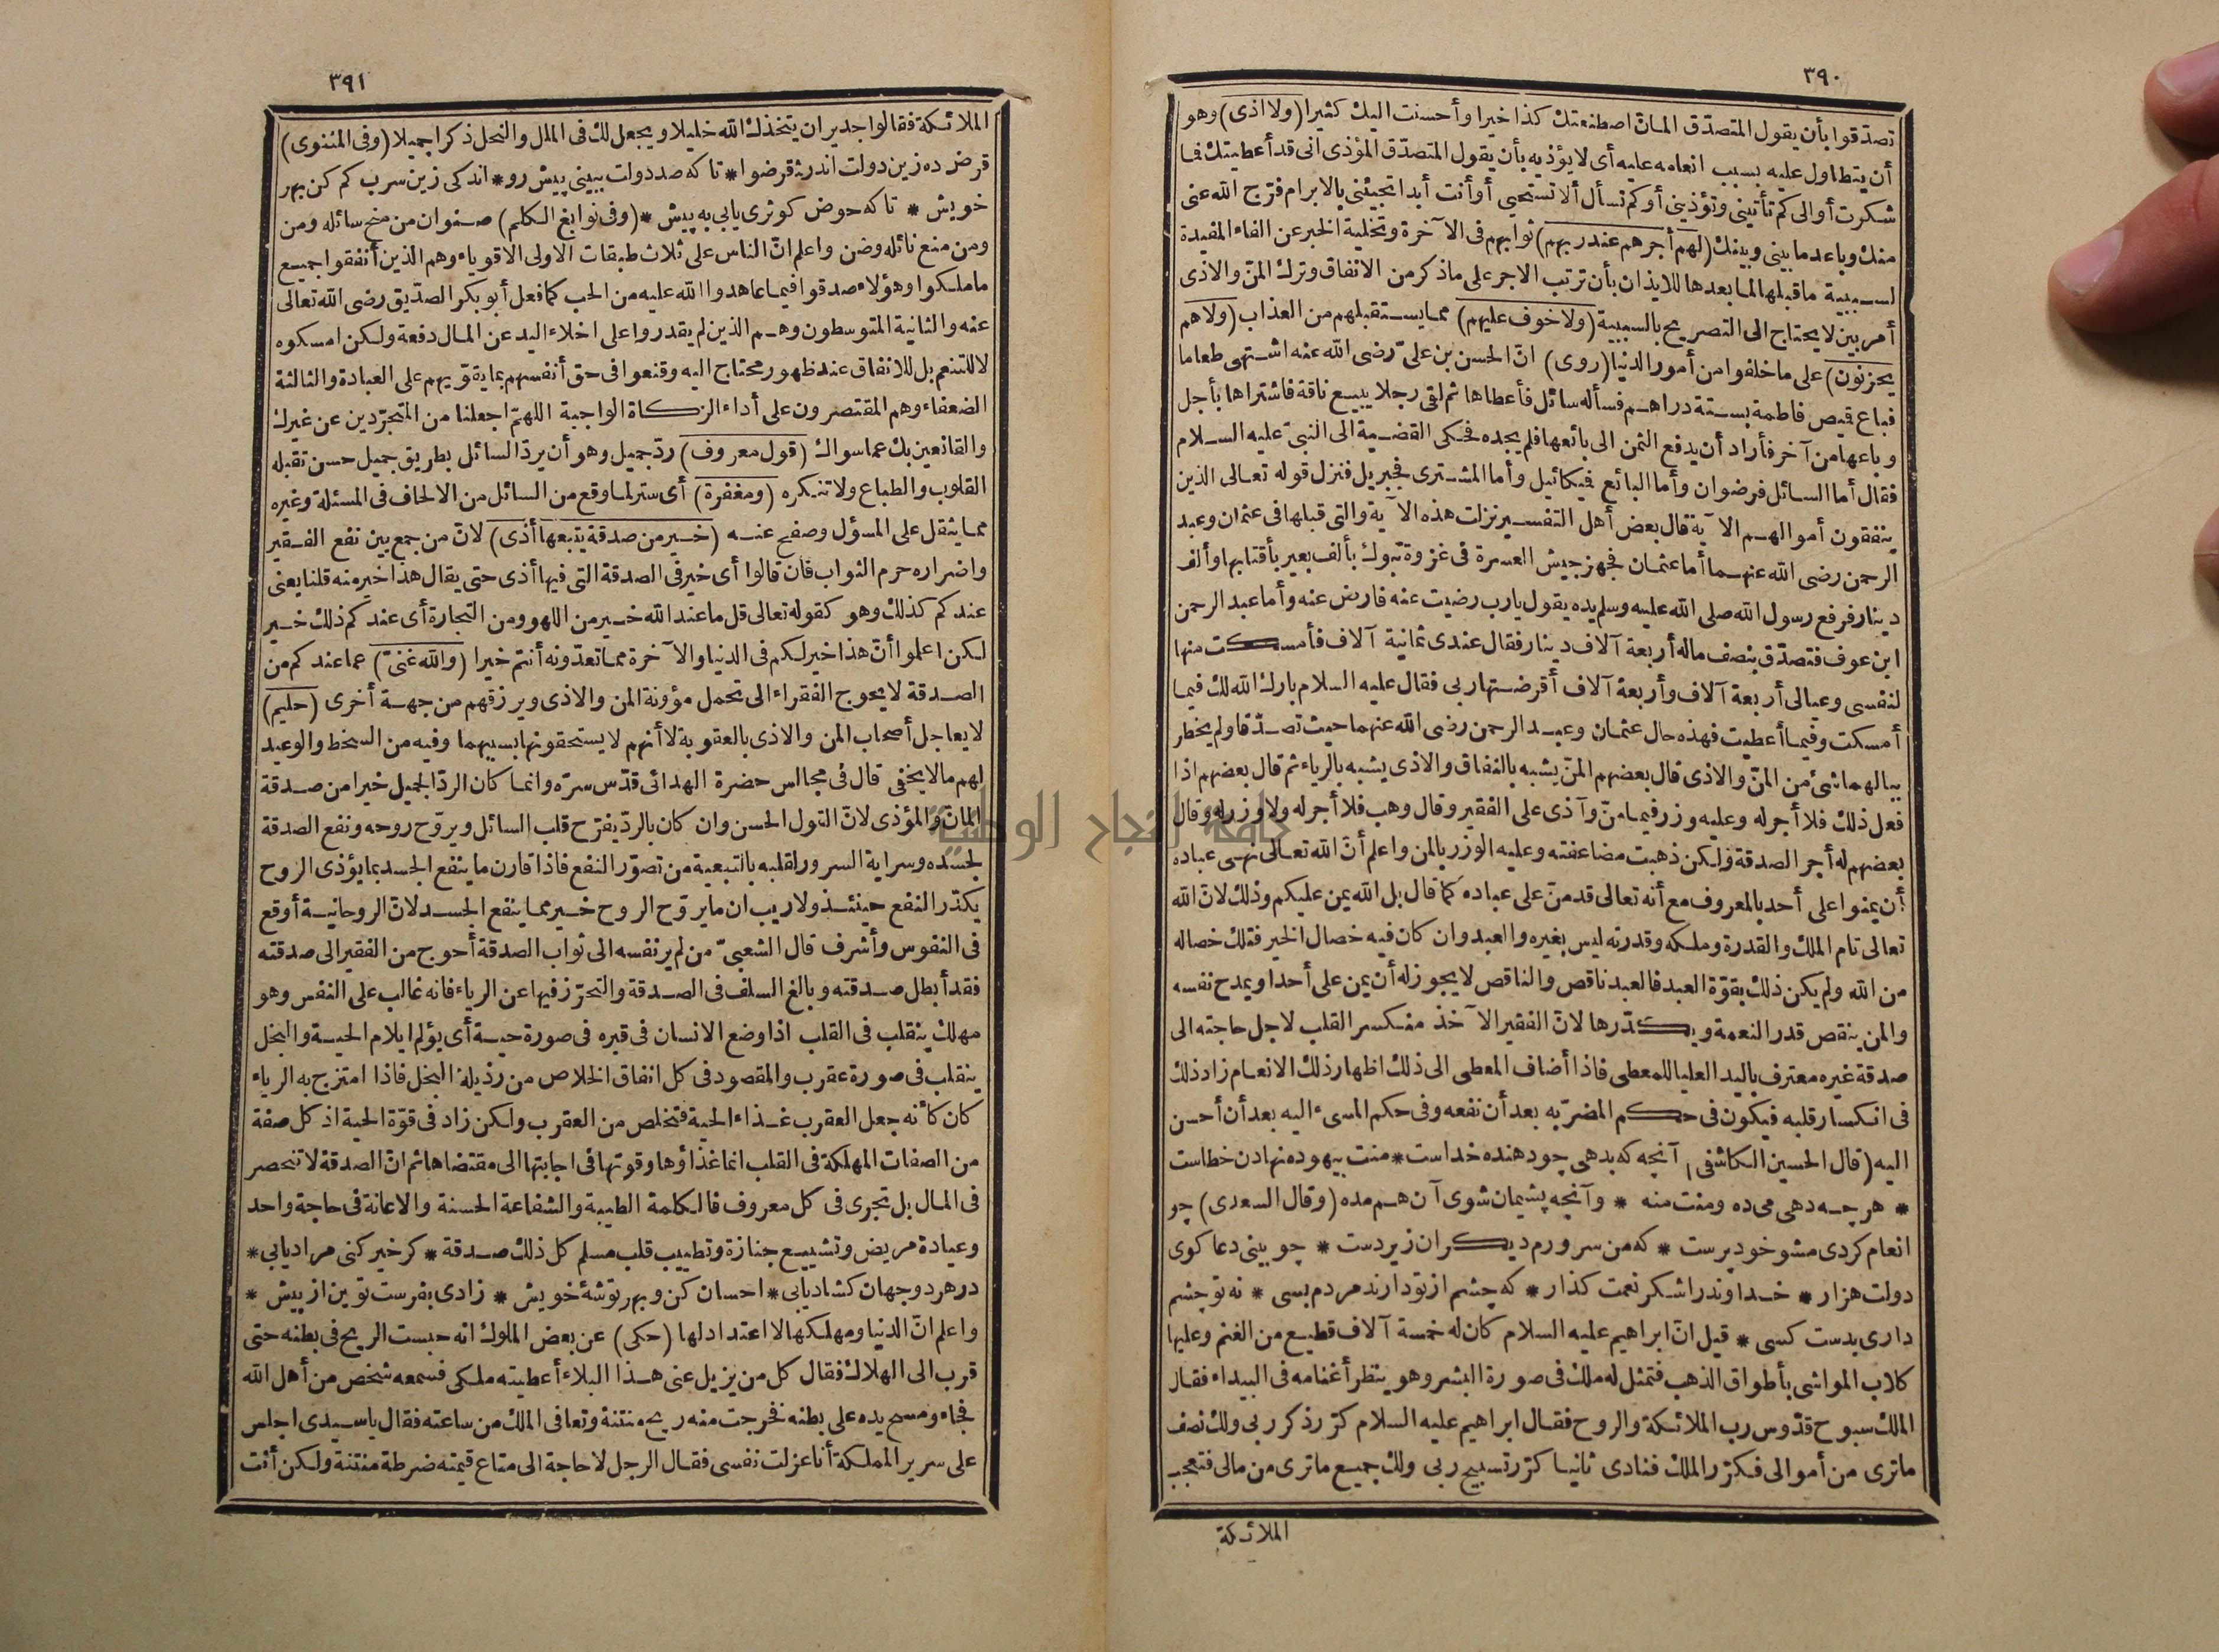 ٣٩٠
تصدّقوا بأن يقول المتصدّق المانّ اصطنعتك كذا خيرا وأحسنت اليك كثيرا (ولا اذى) وهو
أن يتطاول عليه بسبب انعامه عليه أى لا يؤذيه بأن يقول المتصدّق المؤذى انى قد أعطيتك فما
شكرت أو الى كم تأتينى وتؤذينى أو كم تسأل ألا تستحيى أو أنت أبدا تجيئنى بالابرام فرّج الله عنى
منك وباعد ما بينى وبينك (لهم أجرهم عند ربهم) ثوابهم فى الآخرة وتخلية الخبر عن الفاء المفيدة
لسببية ما قبلها لما بعدها للايذان بأن ترتب الاجر على ما ذكر من الانفاق وترك المنّ والاذى
أمر بين لا يحتاج الى التصريح بالسببية (ولا خوف عليهم) مما يستقبلهم من العذاب (ولا هم
يحزنون) على ما خلفوا من أمور الدنيا (روى) انّ الحسن بن علىّ رضى الله عنه اشتهى طعاما
فباع قميص فاطمة بستة دراهم فسأله سائل فأعطاها ثم لقى رجلا يبيع ناقة فاشتراها بأجل
وباعها من آخر فأراد أن يدفع الثمن الى بائعها فلم يجده فحكى القضية الى النبىّ عليه السلام
فقال أما السائل فرضوان وأما البائع فيكائيل وأما المشترى فجبريل فنزل قوله تعالى الذين
ينفقون أموالهم الآية قال بعض أهل التفسير نزلت هذه الآية والتى قبلها فى عثمان وعبد
الرحمن رضى الله عنهما أما عثمان فجهز جيش العسرة فى غزوة تبوك بألف بعير بأقتابها وألف
دينار فرفع رسول الله صلى الله عليه وسلم يده يقول يارب رضيت عنه فارض عنه وأما عبد الرحمن
ابن عوف فتصدّق بنصف ماله أربعة آلاف دينار فقال عندى ثمانية آلاف فأمسكت منها
لنفسى وعيالى أربعة آلاف وأربعة آلاف أقرضتها ربى فقال عليه السلام بارك الله لك فيما
أمسكت وفيما أعطيت فهذه حال عثمان وعبد الرحمن رضى الله عنهما حيث تصدّقا ولم يخطر
ببالهما شئ من المنّ والاذى قال بعضهم المنّ يشبه بالنفاق والاذى يشبه بالرياء ثم قال بعضهم اذا
فعل ذلك فلا أجر له وعليه وزر فيما منّ وآذى على الفقير وقال وهب فلا أجر له ولا وزر له وقال
بعضهم له أجر الصدقة ولكن ذهبت مضاعفته وعليه الوزر بالمن واعلم أنّ الله تعالى نهى عباده
أن يمنوا على أحد بالمعروف مع أنه تعالى قد منّ على عباده كما قال بل الله يمن عليكم وذلك لانّ الله
تعالى تام الملك والقدرة وملكه وقدرته ليس بغيره والعبد وان كان فيه خصال الخير فتلك خصاله
من الله ولم يكن ذلك بقوّة العبد فالعبد ناقص والناقص لا يجوز له أن يمن على أحد او يمدح نفسه
والمن ينقص قدر النعمة ويكدّرها لانّ الفقير الآخذ منكسر القلب لاجل حاجته الى
صدقة غيره معترف باليد العليا للمعطى فاذا أضاف المعطى الى ذلك اظهار ذلك الانعام زاد ذلك
فى انكسار قلبه فيكون فى حكم المضرّ به بعد أن نفعه وفى حكم المسىء اليه بعد أن أحسن
اليه (قال الحسين الكاشفى) آنچه كه بدهى چو دهنده خداست * منت بيهوده نهادن خطاست
* هر چه دهى مى ده ومنت منه * وآنچه پشيمان شوى آن هم مده (وقال السعدى) چو
انعام كردى مشو خود پرست * كه من سرورم ديكران زيردست * چو بينى دعا كوى
دولت هزار * خداوند را شكر نعمت كذار * كه چشم از تو دارند مردم بسى * نه تو چشم
دارى بدست كسى * قيل انّ ابراهيم عليه السلام كان له خمسة آلاف قطيع من الغنم وعليها
كلاب المواشى بأطواق الذهب فتمثل له ملك فى صورة البشر وهو ينظر أغنامه فى البيداء فقال
الملك سبوح قدّوس رب الملائكة والروح فقال ابراهيم عليه السلام كرّر ذكر ربى ولك نصف
ما ترى من أموالى فكرّر الملك فنادى ثانيا كرّر تسبيح ربى ولك جميع ما ترى من مالى فتعجب
الملائكة
٣٩١
الملائكة فقالوا جدير ان يتخذك الله خليلا ويجعل لك فى الملل والنحل ذكرا جميلا (وفى المثنوى)
قرض ده زين دولت اندر قرضوا * تا كه صد دولت ببينى پيش رو * اندكى زين سرب كم كن بهر
خويش * تا كه حوض كوثرى يابى به پيش * (وفى نوابغ الكلم) صنوان من منح سائله ومن
ومن منع نائله وضن واعلم انّ الناس على ثلاث طبقات الاولى الاقوياء وهم الذين أنفقوا جميع
ما ملكوا وهؤلاء صدقوا فيما عاهدوا الله عليه من الحب كما فعل أبو بكر الصدّيق رضى الله تعالى
عنه والثانية المتوسطون وهم الذين لم يقدروا على اخلاء اليد عن المال دفعة ولكن امسكوه
لا للتنعم بل للانفاق عند ظهور محتاج اليه وقنعوا فى حق أنفسهم بما يقوّيهم على العبادة والثالثة
الضعفاء وهم المقتصرون على أداء الزكاة الواجبة اللهمّ اجعلنا من المتجرّدين عن غيرك
والقانعين بك عما سواك (قول معروف) ردّ جميل وهو أن يردّ السائل بطريق جميل حسن تقبله
القلوب والطباع ولا تنكره (ومغفرة) أى ستر لما وقع من السائل من الالحاف فى المسئلة وغيره
مما يثقل على المسؤل وصفح عنه (خير من صدقة يتبعها أذى) لانّ من جمع بين نفع الفقير
واضراره حرم الثواب فان قالوا أى خير فى الصدقة التى فيها أذى حتى يقال هذا خير منه قلنا يعنى
عندكم كذلك وهو كقوله تعالى قل ما عند الله خير من اللهو ومن التجارة أى عندكم ذلك خير
لكن اعلموا أنّ هذا خير لكم فى الدنيا والآخرة مما تعدّونه أنتم خيرا (والله غنىّ) عما عندكم من
الصدقة لا يحوج الفقراء الى تحمل مؤونة المن والاذى ويرزقهم من جهة أخرى (حليم)
لا يعاجل أصحاب المن والاذى بالعقوبة لا أنهم لا يستحقونها بسببهما وفيه من السخط والوعيد
لهم ما لا يخفى قال فى مجالس حضرة الهدائى قدّس سرّه وانما كان الردّ الجميل خيرا من صدقة
المانّ والمؤذى لانّ القول الحسن وان كان بالردّ يفرّح قلب السائل ويروّح روحه ونفع الصدقة
لجسده وسراية السرور لقلبه بالتبعية من تصوّر النفع فاذا قارن ما ينفع الجسد بما يؤذى الروح
يكدّر النفع حينئذ ولا ريب ان ما يروّح الروح خير مما ينفع الجسد لانّ الروحانية أوقع
فى النفوس وأشرف قال الشعبىّ من لم ير نفسه الى ثواب الصدقة أحوج من الفقير الى صدقته
فقد أبطل صدقته وبالغ السلف فى الصدقة والتحرّز فيها عن الرياء فانه غالب على النفس وهو
مهلك ينقلب فى القلب اذا وضع الانسان فى قبره فى صورة حية أى يؤلم ايلام الحية والبخل
ينقلب فى صورة عقرب والمقصود فى كل انفاق الخلاص من رذيلة البخل فاذا امتزج به الرياء
كان كأنه جعل العقرب غذاء الحية فتخلص من العقرب ولكن زاد فى قوّة الحية اذ كل صفة
من الصفات المهلكة فى القلب انما غذاؤها وقوتها فى اجابتها الى مقتضاها ثم انّ الصدقة لا تنحصر
فى المال بل تجرى فى كل معروف فالكلمة الطيبة والشفاعة الحسنة والاعانة فى حاجة واحد
وعيادة مريض وتشييع جنازة وتطييب قلب مسلم كل ذلك صدقة * كر خير كنى مراد يابى *
در هر دو جهان كشاد يابى * احسان كن وبهر توشۀ خويش * زادى بفرست تو ين از پيش *
واعلم انّ الدنيا ومهلكها لا اعتداد لها (حكى) عن بعض الملوك انه حبست الريح فى بطنه حتى
قرب الى الهلاك فقال كل من يزيل عنى هذا البلاء أعطيته ملكى فسمعه شخص من أهل الله
فجاء ومسح يده على بطنه فخرجت منه ريح منتنة وتعافى الملك من ساعته فقال يا سيدى اجلس
على سرير المملكة أنا عزلت نفسى فقال الرجل لا حاجة الى متاع قيمته ضرطة منتنة ولكن أنت
جامعة النجاح الوطنية